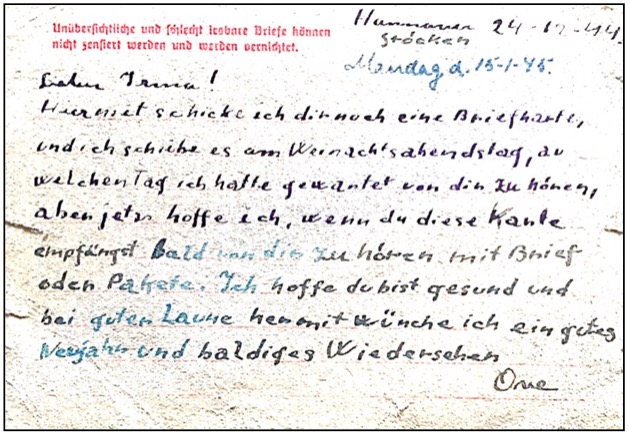 Unübersichtliche und schlecht lesbare Briefe können
nicht zensiert werden und werden vernichtet.
Hannover 24-12-44.
Stöcken
Mandag d. 15-1-45.
Irma!
Hiermit schicke ich dir noch eine Briefkarte,
und ich schiebe es am Weinachtsabendstag, an
welchen Tag ich hatte gewartet von dir zu hören,
aber jetzt hoffe ich, wenn du diese Karte
empfängst bald von dir zu hören mit Brief
oder Pakete. Ich hoffe du bist gesund und
bei guter Laune hermit wünche ich ein gutes
Neujahr und baldiges Wiedersehen